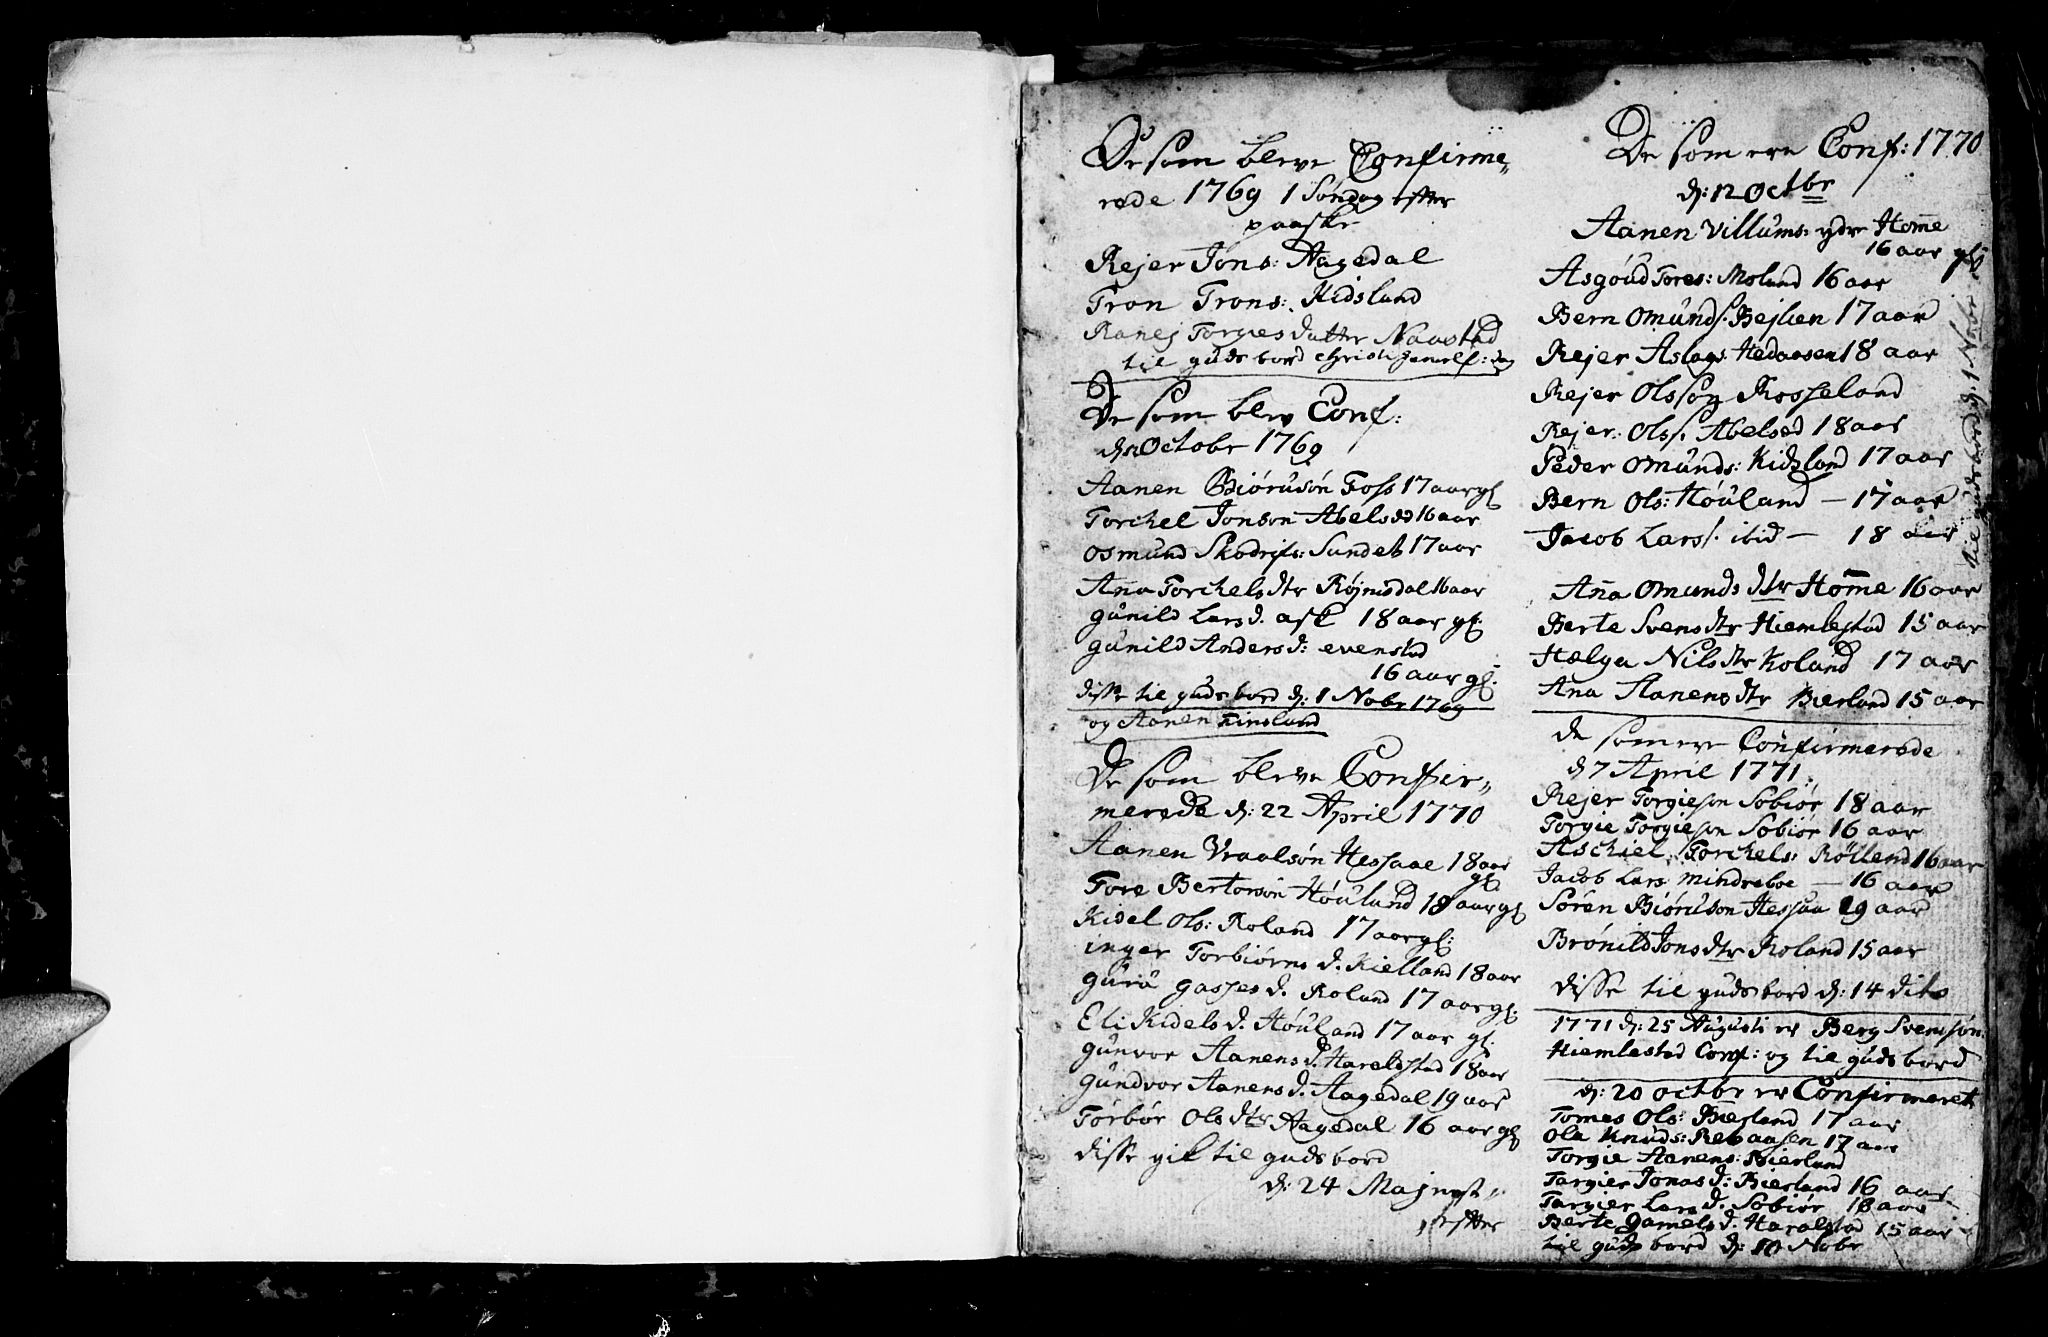 De som bleve Confirme„
rede 1769 1 Søndag efter
paaske
Rejer Jons: Aagedal
Tron Trons: Kidsland
Ranej Torgies datter Naastad
til guds bord christi himelf: dag
De som blev Conf:
d: Octobr 1769
Aanen Biørnsøn Foss 17 aar gl
Torchel Jonson Abelsed 16 aar
Osmund Skodrifs: Sundet 17 aar
Anna Torchels dtr Røjnisdal 16 aar
gunild Lars d. ask 18 aar gl:
gunild Anders d: evenstad
16 aar gl:
disse til guds bord d: 1 Nobr 1769
og Aanen Einsland
De som bleve Confir„
merede d: 22 April 1770
Aanen Vraalsøn Hessaae 18 aar
gl
Tore Bertorsøn Høuland 18 aar gl
Kidel Ols: Roland 17 aar gl:
inger Torbiørns d. Kielland 18 aar
guru gasses d. Roland 17 aar gl:
Eli Kidels d. Høuland 17 aar gl:
gunvor Aanens d. Hareldstad 18 aar
gundvor Aanens d. Aagedal 19 aar
Torbør Ols dtr Aagedal 16 aar gl
disse gik til guds bord
d: 24 Maj nest„
efter
De som ere Conf: 1770
d: 12 Octbr
Aanen Villums: ydre Home
16 aar gl
Asgoud Tores: Moland 16 aar
Bern Omunds. Bejlien 17 aar
Rejer Aslags. Hedaasen 18 aar
Rejer Olsson Rosseland
Rejer. Ols. Abelsed 18 aar
Peder Omunds: Kidsland 17 aar
Bern Ols: Høuland — 17 aar
Jacob Lars. ibid — 18 aar
Ana Omunds dtr Home 16 aar
Berte Svens dtr Hiemlestad 15 aar
Helga Nils dtr Koland 17 aar
Ana Aanens dtr Bierland 15 aar
til guds bord d: 1 Nobr
de som ere Confirmerede
d 7 April 1771
Rejer Torgieson Sobiør 18 aar
Torgie Torgieson Sobiør 16 aar
Aschiel Torchels: Rølland 16 aar
Jacob Lars: mindreboe — 16 aar
Søren Biørnson Hessaa 19 aar
Brønild Jons dtr Roland 15 aar
disse til guds bord d: 14 dito
1771 d: 25 Augusti er Berg Svensøn
Hiemlestad Conf: og til guds bord
d: 20 octbr er Confirmeret
Tomes Ols: Bierland 17 aar
Ole Knuds: Rebaasen 17 aar
Torgie Aanens: Bierland
Targier Jonas d: Bierland 16 aar
Targier Lars d. Sobiør 18 aar
Berte Damels d. Haralstad 15 aar
til guds bord d: 10 Nobr